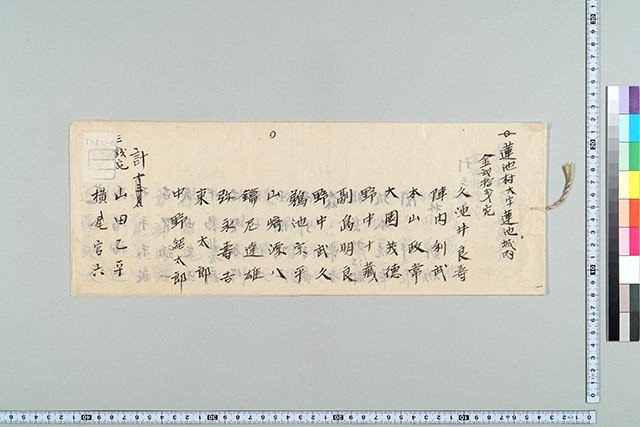 蓮池村大字蓮池城内
久池井良寿
陣内利武
本山政常
大園茂徳
野中十藏
副島明良
野中武久
鵜池宗平
山崎源八
鐘尼達雄
弥永壽吉
東太郎
中野総太郎
計
三銭宛
山田乙平
横尾官六